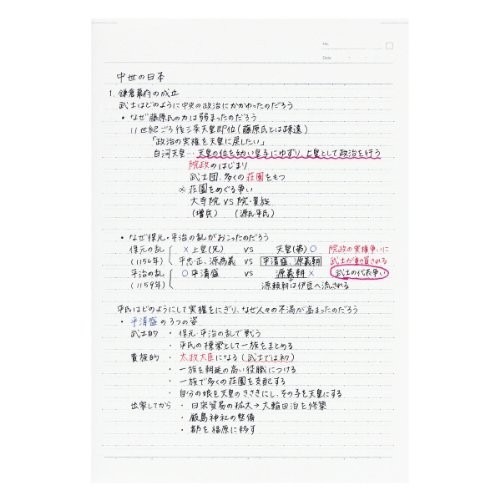 No.
Date
中世の日本
1. 鎌倉幕府の成立
武士はどのように中央の政治にかかわったのだろう
・なぜ藤原氏の力は弱まったのだろう
11世紀ごろ 後三条天皇即位(藤原氏とは疎遠)
「政治の実権を天皇に戻したい」
白河天皇…天皇の位を幼い皇子にゆずり、上皇として政治を行う
院政のはじまり
武士団、多くの荘園をもつ
※荘園をめぐる争い
大寺院 VS 院・貴族
(僧兵) (源氏平氏)
・なぜ保元・平治の乱がおこったのだろう
保元の乱 × 上皇(兄) vs 天皇(弟) ○ 院政の実権争いに
(1156年) 平忠正、源為義 vs 平清盛、源義朝 武士が動員される
平治の乱 ○ 平清盛 vs 源義朝 × 武士の代表争い
(1159年) 源頼朝は伊豆へ流される
平氏はどのようにして実権をにぎり、なぜ人々の不満が高まったのだろう
・平清盛の3つの姿
武士的 ・保元・平治の乱で戦う
・平氏の棟梁として一族をまとめる
貴族的 ・太政大臣になる(武士では初)
・一族を朝廷の高い役職につける
・一族で多くの荘園を支配する
・自分の娘を天皇のきさきにし、その子を天皇にする
出家してから ・日宋貿易の拡大→大輪田泊を修築
・厳島神社の整備
・都を福原に移す